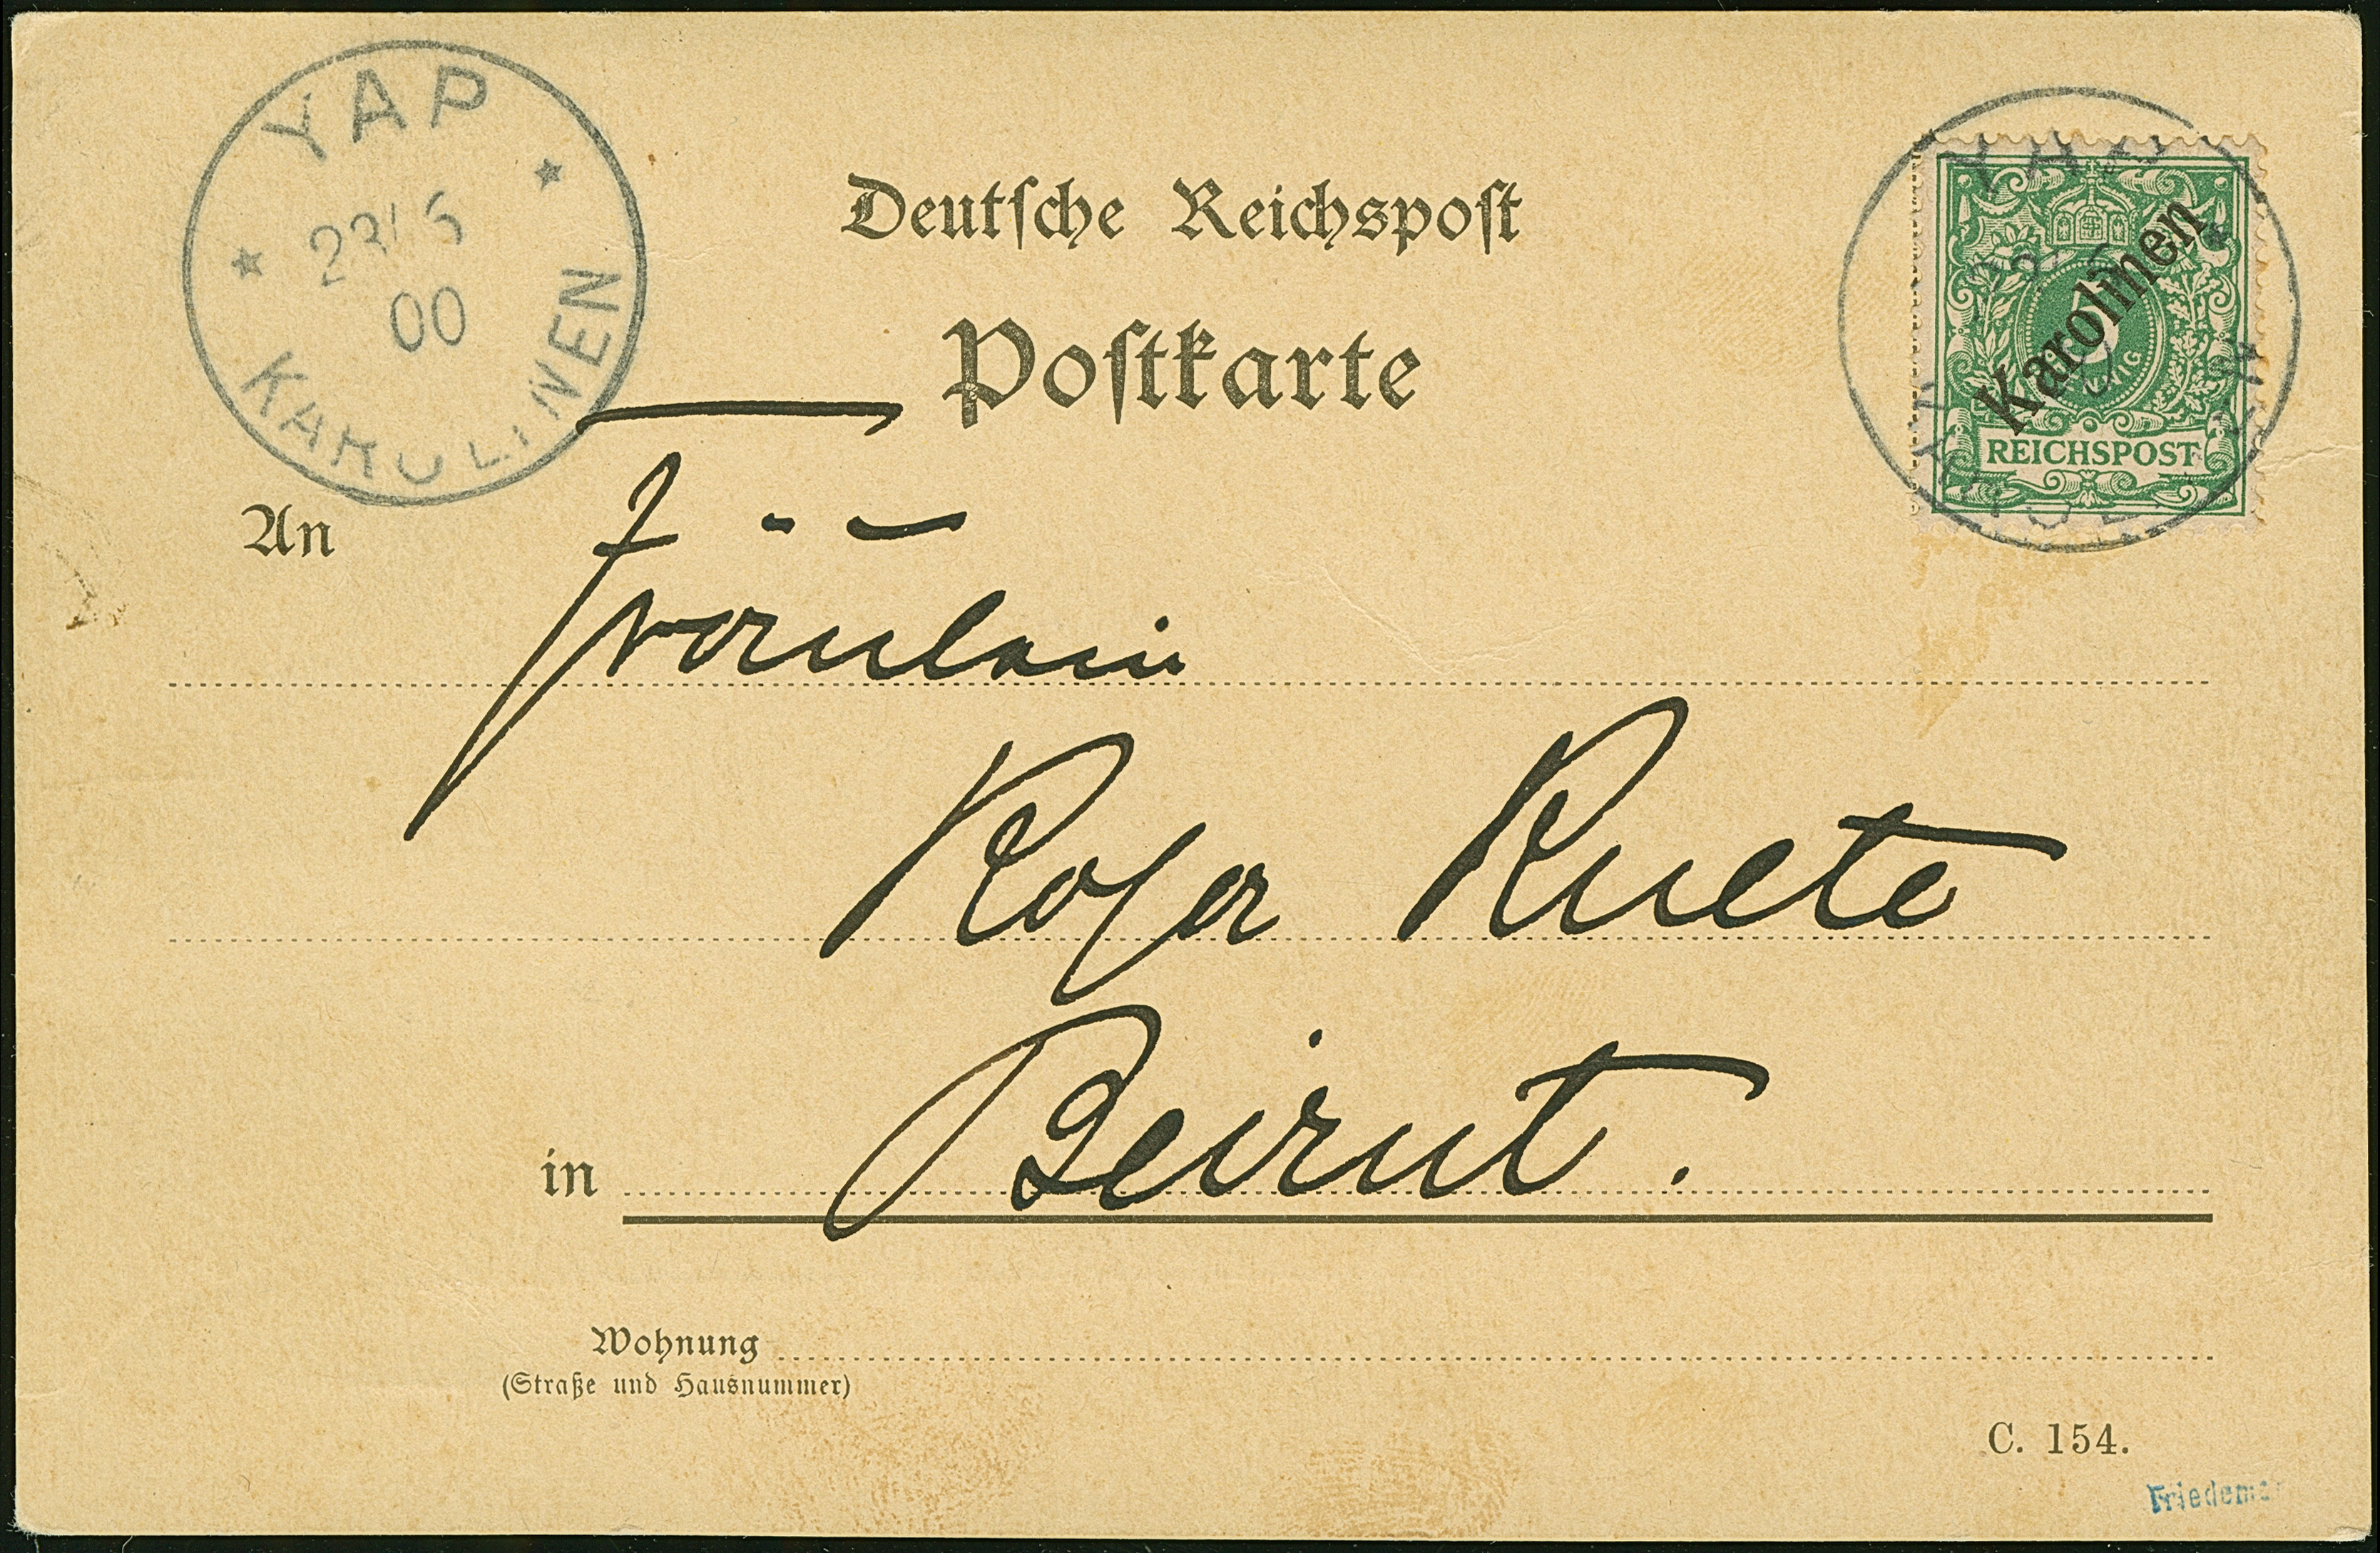 YAP
23/5
00
KAROLINEN
Deutsche Reichspost
Postkarte
Karolinen
5
REICHSPOST
An
Fräulein
Rosa Ruete
in Beirut.
Wohnung
(Straße und Hausnummer)
C. 154.